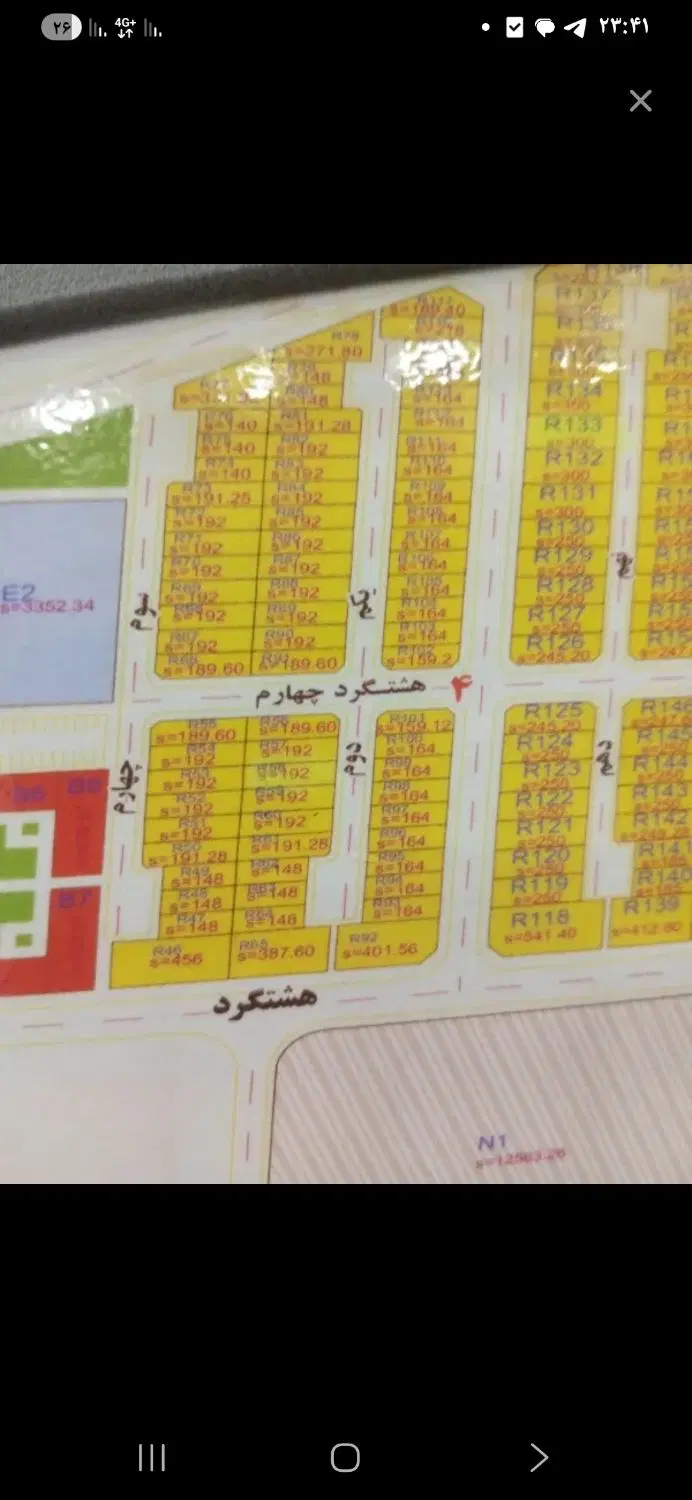 ۲۶
4G+
۲۳:۴۱
R78
s=371.80
s=148
s=148
s=169.40
R137
R134
R133
s=300
R132
s=300
R131
s=300
R130
s=250
R129
s=250
R128
s=250
R127
s=250
R126
s=245.20
R76
s=140
R75
s=140
R74
s=140
R73
s=191.28
R72
s=192
R71
s=192
R70
s=192
R69
s=192
R68
s=192
R67
s=192
R66
s=189.60
R81
s=191.28
R82
s=192
R83
s=192
R84
s=192
R85
s=192
R86
s=192
R87
s=192
R88
s=192
R89
s=192
R90
s=192
R91
s=189.60
s=164
s=164
R111
s=164
R110
s=164
R109
s=164
R108
s=164
R107
s=164
R106
s=164
R105
s=164
R104
s=164
R103
s=164
R102
s=159.2
E2
s=3352.34
سوم
یکم
نهم
هشتگرد چهارم
۴
R55
s=189.60
R54
s=192
R53
s=192
R52
s=192
R51
s=192
R50
s=191.28
R49
s=148
R48
s=148
R47
s=148
R46
s=456
R56
s=189.60
R57
s=192
R58
s=192
R59
s=192
R60
s=192
R61
s=191.28
R62
s=148
R63
s=148
R64
s=148
R65
s=387.60
R101
s=159.12
R100
s=164
R99
s=164
R98
s=164
R97
s=164
R96
s=164
R95
s=164
R94
s=164
R93
s=164
R92
s=401.56
R125
s=245.20
R124
s=250
R123
s=250
R122
s=250
R121
s=250
R120
s=250
R119
s=250
R118
s=541.40
R145
R144
s=250
R143
s=250
R142
s=249.28
R141
s=185
R140
s=185
R139
s=412.60
چهارم
دوم
دهم
B6
B8
B7
هشتگرد
N1
s=12563.26